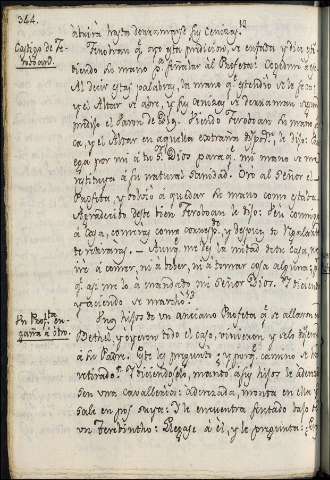 364.
abrirá hasta derramarse sus cenizas.12
Castigo de Je-
roboan.
Jeroboan q.e oyó esta prediccion, se enfada, y dice esten-
diendo su mano p.a señalar al Profeta: Cogedme a ese.
Al decir estas palabras, la mano q.e estendió se la seca:
y el Altar se abre, y sus cenizas se derraman segun
predijo el Varon de Dios. Viendo Jeroboan su mano se-
ca, y el Altar en aquella extraña disposn., le dijo: Rue-
ga por mi á tu S.r Dios para q.e mi mano se me
restituya á su natural sanidad. Oró al Señor el
Profeta, y volvió á quedar su mano como estaba.
Agradecido deste bien Jeroboan le dijo: Ven conmigo
á casa, comeras como
de retirarás. — Aunq.e me des la mitad de tu casa, no
iré á comer, ni á beber, ni á tomar cosa alguna; p.r
q.e asi me lo á mandado mi Señor Dios. I diciendo
y haciendo se marchó.13
Un Prof.ta en-
gaña á otro.
Unos hijos de un anciano Profeta, q.e se allaron en
Bethel, y vieron todo el caso, vinieron y selo dijeron
á su Padre. Este les preguntó: y por q.e camino se ha
retirado? I diciendoselo, mandó á sus hijos le aderez-
sen una cavalleria: aderezada, monta en ella y
sale en pos suya: I le encuentra sentado bajo de
un Terebintho: Llegase á él, y le pregunta: